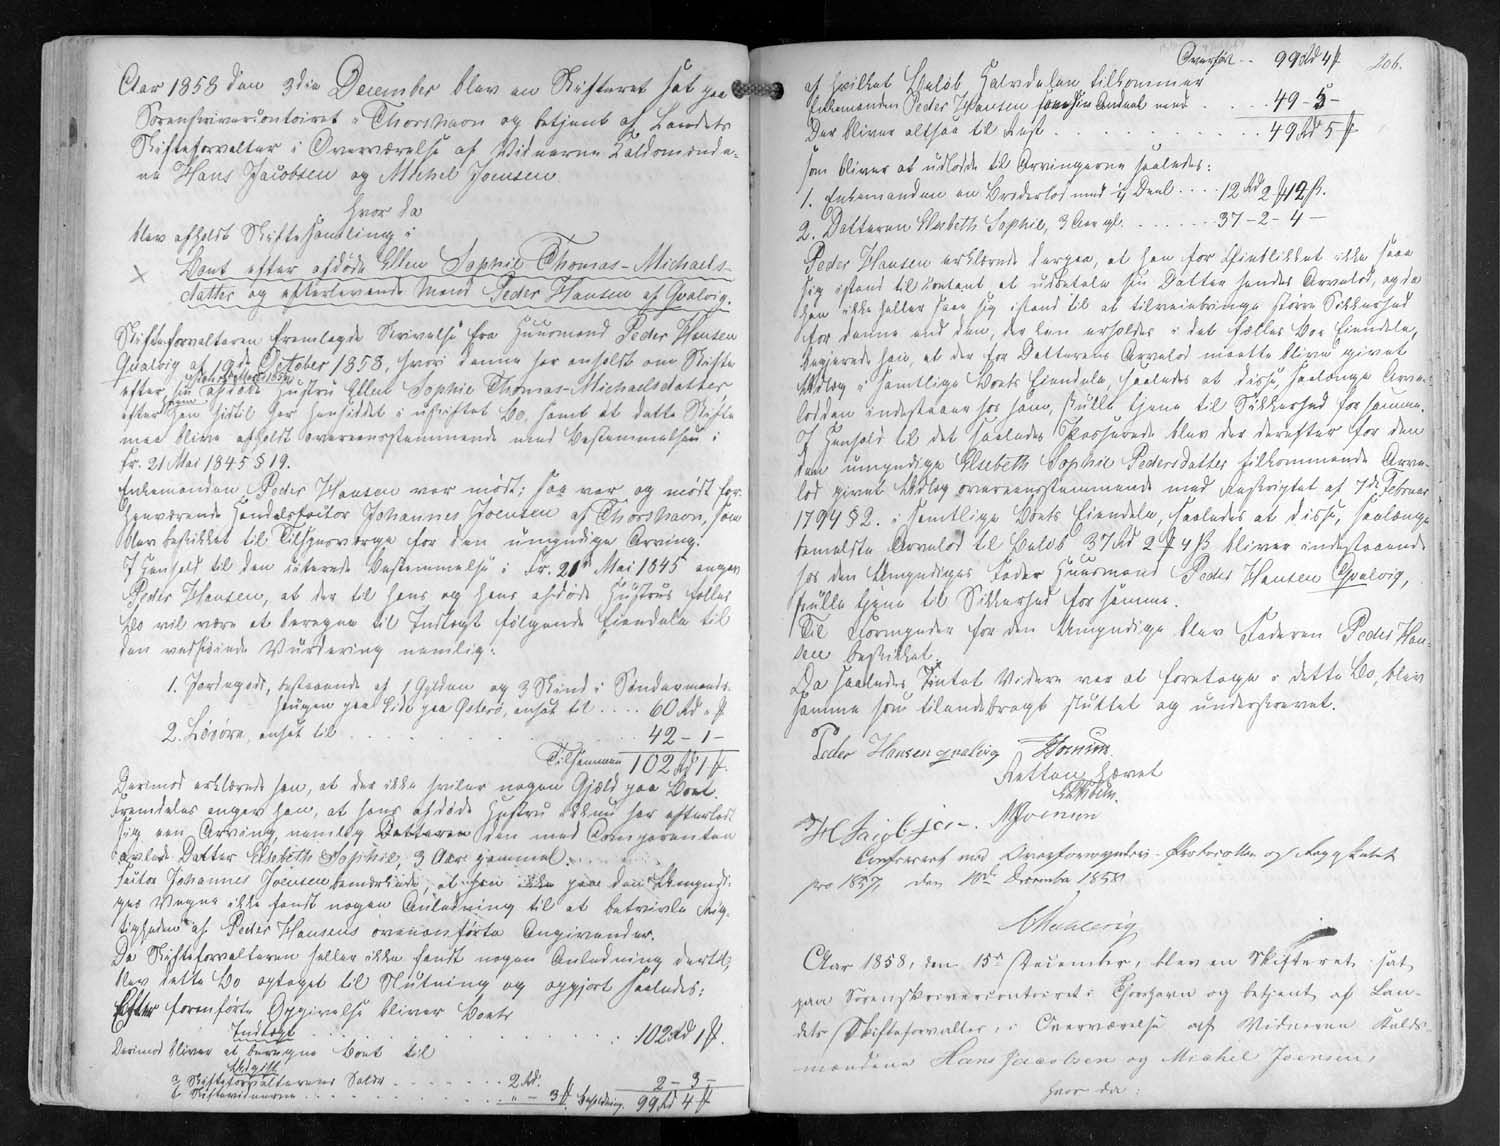 Aar 1858 den 3die December blev en Skifteret sat paa
Sorenskrivercontoiret i Thorshavn og betjent af Landets
Skifteforvalter i Overværelse af Vidnerne Kaldsmænde-
ne Hans Jacobsen og Michel Joensen
hvor da
blev afholdt Skiftesamling i
Boet efter afdøde Ellen Sophie Thomas-Michaels-
datter og efterlevende Mand Peder Hansen af Qvalvig.
Skifteforvalteren fremlagde Skrivelse fra Huusmand Peder Hansen
Qvalvig af 19de October 1858, hvori denne har anholdt om Skifte
efter sin afdøde Hustru Ellen Sophie Thomas-Michaelsdatter
efter hvem han hidtil har hensiddet i uskiftet Bo, samt at dette Skifte
maa blive afholdt overeensstemmende med Bestemmelsen i
Fr. 21 Mai 1845 § 19.
Enkemanden Peder Hansen var mødt; saa var og mødt for-
henværende Handelsfactor Johannes Joensen af Thorshavn, som
blev beskikket til Tilsynsværge for den umyndige Arving.
I Henhold til den citerede Bestemmelse i Fr. 21de Mai 1845 angav
Peder Hansen, at der til hans og hans afdøde Hustrus fælles
Bo vil være at beregne til Indtægt følgende Eiendele til
den vedføiede Vurdering nemlig:
1. Jordegods, bestaaende af 1 Gylden og 3 Skind i Søndermands-
haugen paa Eide paa Østerø, ansat til .... 60 Rd " ƒ
2. Løsøre, ansat til . . . . . 42 - 1 -
Tilsammen 102 Rd 1 ƒ.
Derimod erklærede han, at der ikke hviler nogen Gjæld paa Boet.
Fremdeles angav han, at hans afdøde Hustru ikkun har efterladt
sig een Arving nemlig Datteren den med Comparenten
avlede Datter Elsebeth Sophie, 3 Aar gammel.
Factor Johannes Joensen bemærkede, at han paa den Umyndi-
ges Vegne ikke fandt nogen Anledning til at betvivle Rig-
tigheden af Peder Hansens ovenanførte Angivender.
Da Skifteforvalteren heller ikke fandt nogen Anledning dertil,
blev dette Bo optaget til Slutning og opgjort saaledes:
Efter foranførte Opgivelse bliver Boets
Indtægt . . . . . 102 Rd 1 ƒ.
Derimod bliver at beregne Boet til
Udgift
a, Skifteforvalterens Salær . . . . 2 Rd.
b, Skiftevidnerne . . . . " - 3 ƒ. 2 - 3 -
Beholdning 99 Rd 4 ƒ
206.
Overført .. 99 Rd 4 ƒ
af hvilket Beløb Halvdelen tilkommer
Enkemanden Peder Hansen med . . . . 49 - 5 -
Der bliver altsaa til Rest . . . . . 49 Rd 5 ƒ
som bliver at udlodde til Arvingerne saaledes:
1. Enkemanden en Broderlod med 1/4 Deel .... 12 Rd 2 ƒ 12 ß.
2. Datteren Elsebeth Sophie, 3 Aar gl. . . . . 37 - 2 - 4 -
Peder Hansen erklærede derpaa, at han for Øieblikket ikke saae
sig istand til contant at udbetale sin Datter hendes Arvelod, og da
han ikke heller saae sig istand til at tilveiebringe større Sikkerhed
for denne end den, der kan erholdes i det fælles Boes Eiendele,
begjerede han, at der for Datterens Arvelod maatte blive givet
Udlæg i samtlige Boets Eiendele, saaledes at disse, saalænge Arve-
lodden indestaaer hos ham, skulle tjene til Sikkerhed for samme.
I Henhold til det saaledes Passerede blev der derefter for den
den umyndige Elsebeth Sophie Pedersdatter tilkommende Arve-
lod givet Udlæg overeensstemmende med Rescriptet af 7de Februar
1794 § 2. i samtlige Boets Eiendele, saaledes at disse, saalænge
bemeldte Arvelod til Beløb 37 Rd 2 ƒ 4 ß bliver indestaaende
hos den Umyndiges Fader Huusmand Peder Hansen Qvalvig,
skulle tjene til Sikkerhed for samme.
Til Formynder for den Umyndige blev Faderen Peder Han-
sen beskikket.
Da saaledes Intet videre var at foretage i dette Bo, blev
samme som tilendebragt sluttet og underskrevet.
Peder Hansen qvalvig JJoensen.
Retten hævet
H Jacobsen. MJoensen
Confereret med Overformynderi-Protocollen og Regnskabet
pro 1857, den 10de December 1858
Aar 1858, den 15de December, blev en Skifteret sat
paa Sorenskrivercontoiret i Thorshavn og betjent af Lan-
dets Skifteforvalter, i Overværelse af Vidnerne Kalds-
mændene Hans Jacobsen og Michel Joensen,
hvor da: